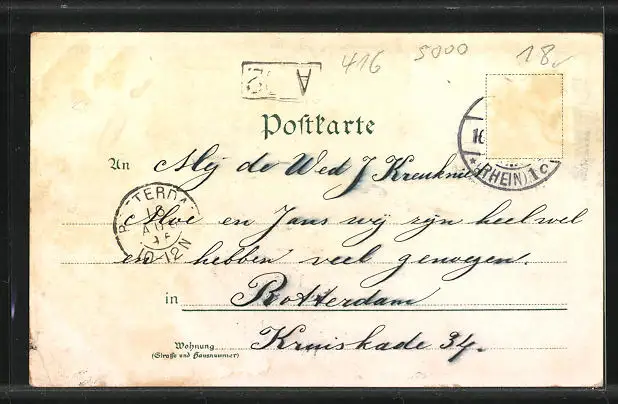 416 5000 18
A
Postkarte
(RHEIN) 1c
An Mej de Wed J Kreukniet
ROTTERDA
10-12N
Alve en Jans wij zijn heel wel
en hebben veel genoegen.
in Rotterdam
Wohnung
(Straße und Hausnummer)
Kruiskade 34.